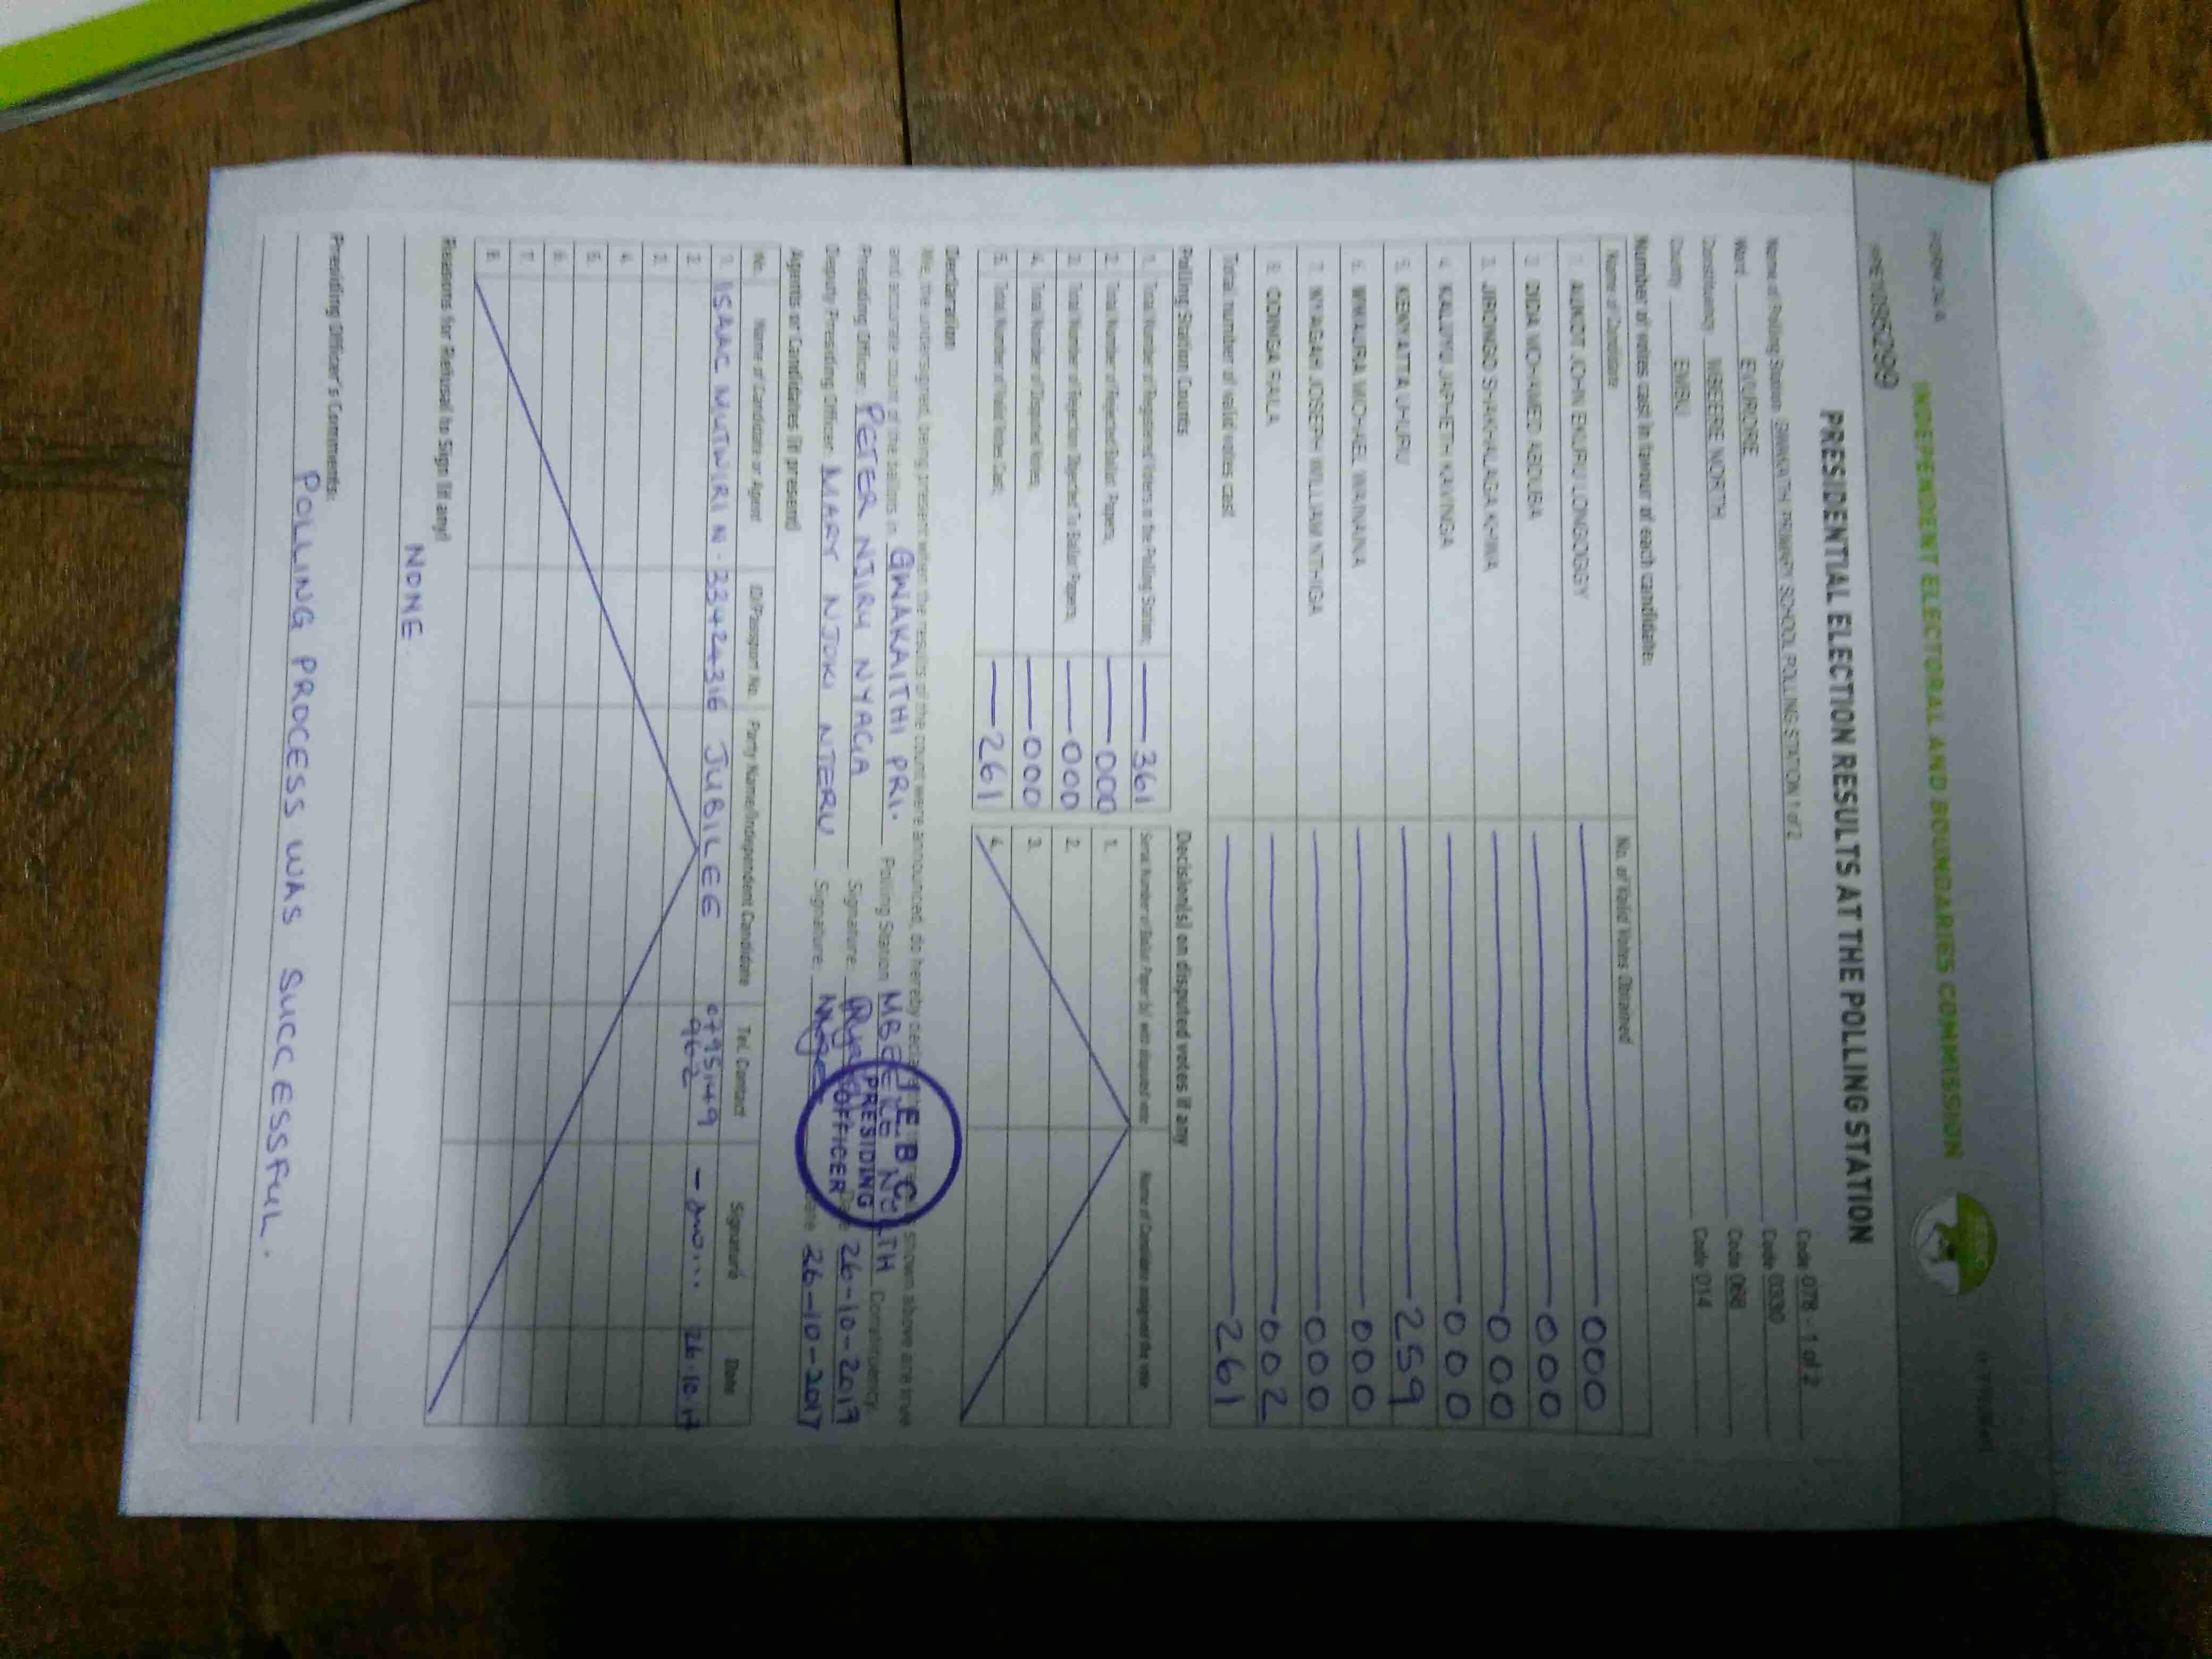 FORM 34 A
INDEPENDENT ELECTORAL AND BOUNDARIES COMMISSION
PRESIDENTIAL ELECTION RESULTS AT THE POLLING STATION
Name of Polling Station PRIMARY SCHOOL POLLING STATION 1 of 2 Code 078 - 1 of 2
Ward EVURORE Code 0330
Constituency MBEERE NORTH Code 066
County EMBU Code 014
Number of votes cast in favour of each candidate:
Name of Candidate No. of Valid Votes Obtained
1. AUKOT JOHN EKURU LONGOGGY 000
2. DIDA MOHAMED ABDUBA 000
3. JIRONGO SHAKHALAGA KHWA 000
4. KALUYU JAPHETH KAVINGA 000
5. KENYATTA UHURU 259
6. MWAURA MICHAEL WAINAINA 000
7. NYAGAH JOSEPH WILLIAM NTHIGA 000
8. ODINGA RAILA 002
Total number of valid votes cast 261
Polling Station Counts
1. Total Number of Registered Voters in the Polling Station; 361
2. Total Number of Rejected Ballot Papers; 000
3. Total Number of Rejection Objected To Ballot Papers; 000
4. Total Number of Disputed Votes; 000
5. Total Number of Valid Votes Cast; 261
Decision(s) on disputed votes if any
Serial Number of Ballot Paper (s) with disputed vote Name of Candidate assigned the vote
1.
2.
3.
4.
Declaration
We, the undersigned, being present when the results of the count were announced, do hereby declare shown above are true
and accurate count of the ballots in GWAKAITHI PRI. Polling Station MBEERE NORTH Constituency.
Presiding Officer: PETER NJIRU NYAGA Signature: 26-10-2017
Deputy Presiding Officer: MARY NJOKI NTERU Signature: Date 26-10-2017
IEBC
PRESIDING
OFFICER
Agents or Candidates (if present)
No. Name of Candidate or Agent ID/Passport No. Party Name/Independent Candidate Tel. Contact Signature Date
1. ISAAC MUTWIRI N. 33424316 JUBILEE 0795149962 26.10.17
2.
3.
4.
5.
6.
7.
8.
Reasons for Refusal to Sign (if any)
NONE
Presiding Officer's Comments:
POLLING PROCESS WAS SUCCESSFUL.